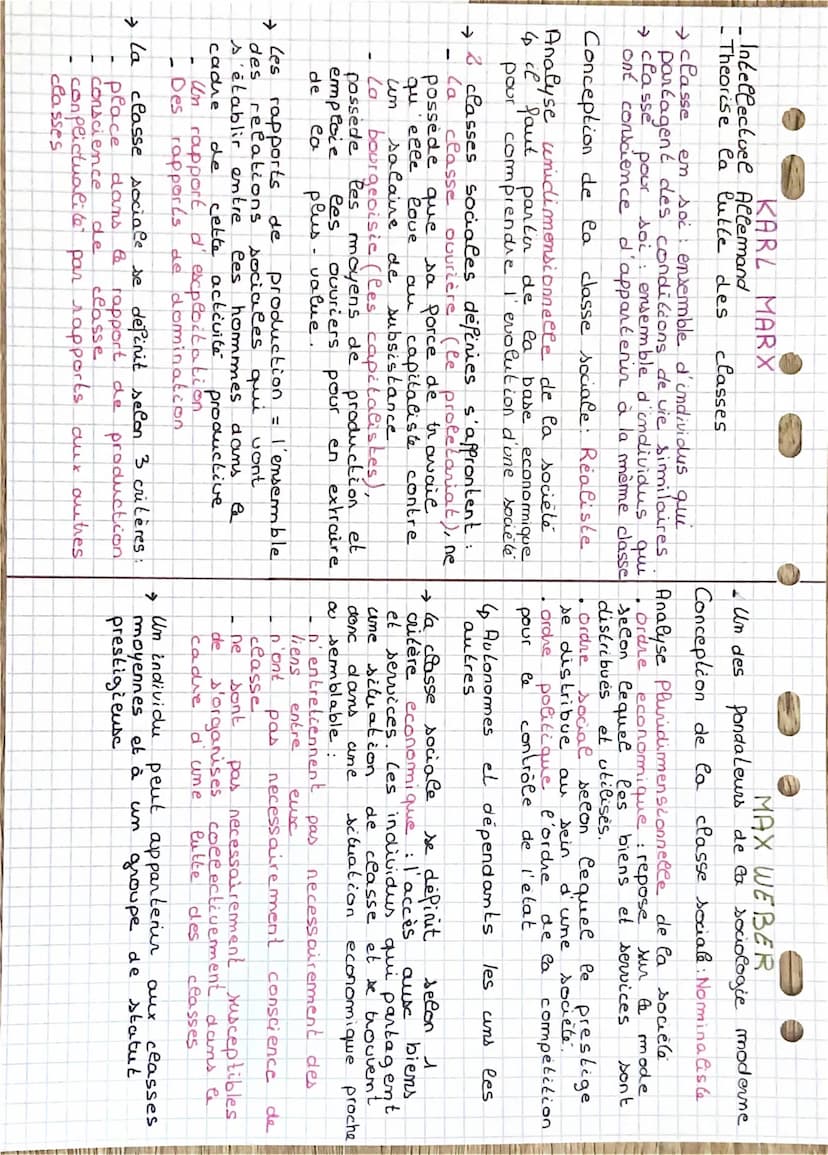 KARL MARX
- Intellectuel Allemand
- Théorise la lutte des classes
→ classe en soi : ensemble d'individus qui
partagent des conditions de vie similaires.
→ classe pour soi : ensemble d'individus qui
ont conscience d'appartenir à la même classe
Conception de la classe sociale : Réaliste
Analyse unidimensionnelle de la société
↳ il faut partir de la base economique
pour comprendre l'evolution d'une société
→ 2 classes sociales définies s'affrontent :
- La classe ouvrière (le proletariat), ne
possède que sa force de travail
qu'elle loue au capitaliste contre
un salaire de subsistance
- La bourgeoisie (les capitalistes),
possède les moyens de production et
emploie les ouvriers pour en extraire
de la plus-value.
→ Les rapports de production = l'ensemble
des relations sociales qui vont
s'établir entre les hommes dans le
cadre de cette activité productive
- Un rapport d'exploitation
- Des rapports de domination
→ La classe sociale se définit selon 3 critères :
- place dans le rapport de production
- conscience de classe
- conflictualité par rapports aux autres
classes
MAX WEBER
- Un des fondateurs de la sociologie moderne
Conception de la classe sociale : Nominaliste
Analyse pluridimensionnelle de la société
. ordre economique : repose sur le mode
selon lequel les biens et services sont
distribués et utilisés.
. ordre social selon lequel le prestige
se distribue au sein d'une société.
. ordre politique l'ordre de la compétition
pour le contrôle de l'état
↳ Autonomes et dépendants les uns les
autres
→ La classe sociale se définit selon 1
critère economique : l'accès aux biens
et services. Les individus qui partagent
une situation de classe et se trouvent
donc dans une situation economique proche
ou semblable :
- n'entretiennent pas necessairement des
liens entre eux
- n'ont pas necessairement conscience de
classe
- ne sont pas necessairement susceptibles
de s'organises collectivement dans le
cadre d'une lutte des classes
→ Un individu peut appartenir aux classes
moyennes et à un groupe de statut
prestigieuse